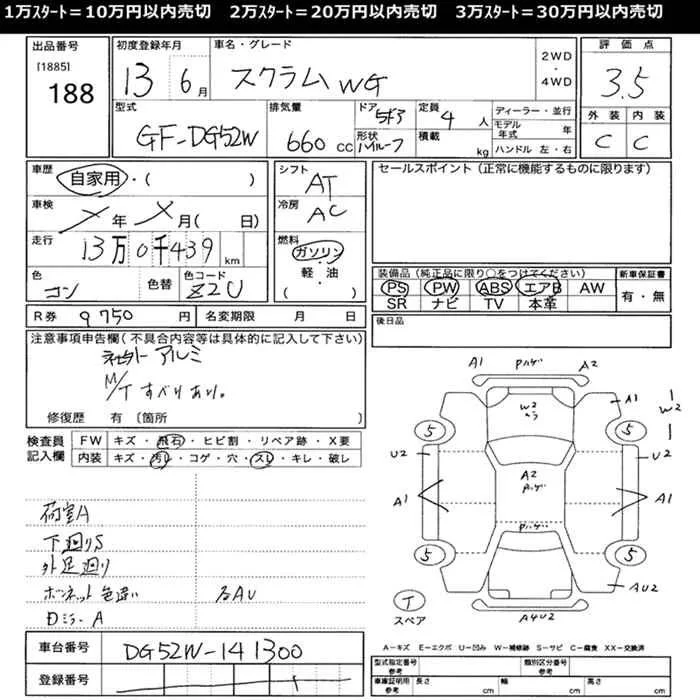 1万ｽﾀｰﾄ＝10万円以内売切　2万ｽﾀｰﾄ＝20万円以内売切　3万ｽﾀｰﾄ＝30万円以内売切
出品番号
[1885]
188
初度登録年月
13 6月
車名・グレード
スクラム WG
2WD
・
4WD
評価点
3.5
型式
GF-DG52W
排気量
660 cc
ドア
5ドア
形状
ハイルーフ
定員
4 人
積載
kg
ディーラー・並行
モデル年式 年
ハンドル 左・右
外装 内装
C C
車歴
自家用・( )
車検
メ年 メ月( 日)
走行
13万0千439 km
色
コン
色替
色コード
Z2U
シフト
AT
冷房
AC
燃料
ガソリン
・
軽・油
( )
セールスポイント(正常に機能するものに限ります)
装備品(純正品に限り○をつけてください)
PS PW ABS エアB AW
SR ナビ TV 本革
新車保証書
有・無
R券 9750 円
名変期限 月 日
後日品
注意事項申告欄(不具合内容等は具体的に記入して下さい)
アルミ
M/T すべりあり。
修復歴 有 〔箇所 〕
検査員
記入欄
FW キズ・飛石・ヒビ割・リペア跡・X要
内装 キズ・汚レ・コゲ・穴・スレ・キレ・破レ
荷室A
下廻りS
外足廻り
ボンネット色違い 各AU
Dミラ-A
A1 Pハゲ A2
W2
A1
W2
5 5
U2 U2
A2
Pハゲ
A1 A1
Pハゲ
5 5
AU2
T
スペア
A4U2
A－キズ E－エクボ U－凹み W－補修跡 S－サビ C－腐食 XX－交換済
車台番号
DG52W-141300
登録番号
型式指定番号
参考
類別区分番号
参考
車庫証明用
参考
長さ cm 幅 cm 高さ cm